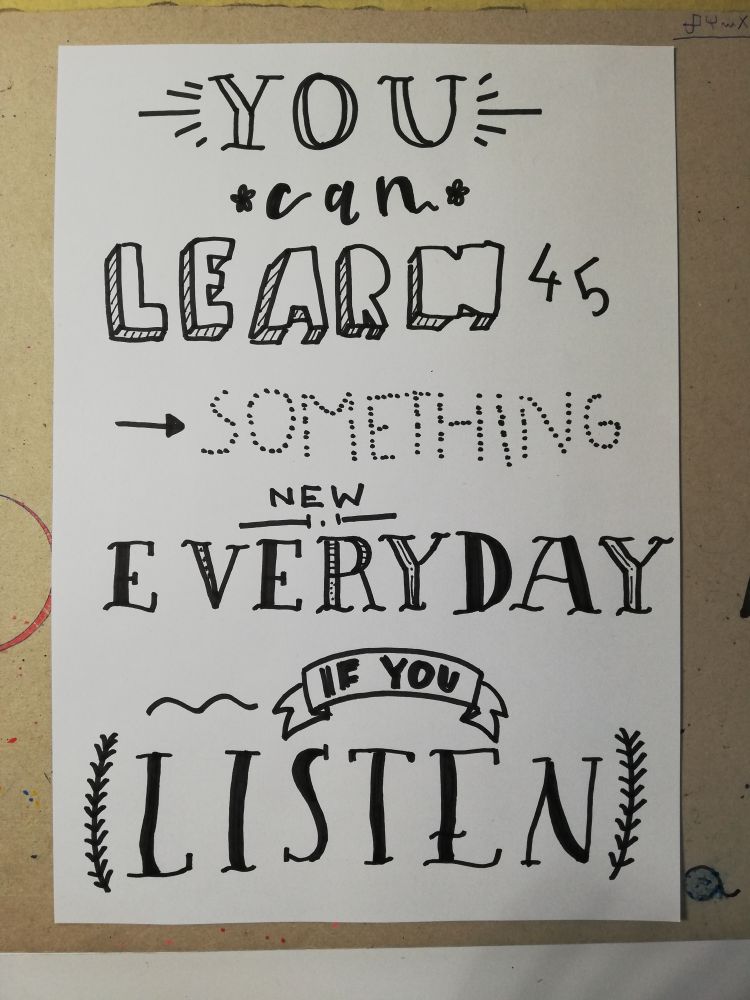 YOU
can
LEARN 45
SOMETHING
NEW
EVERYDAY
IF YOU
LISTEN